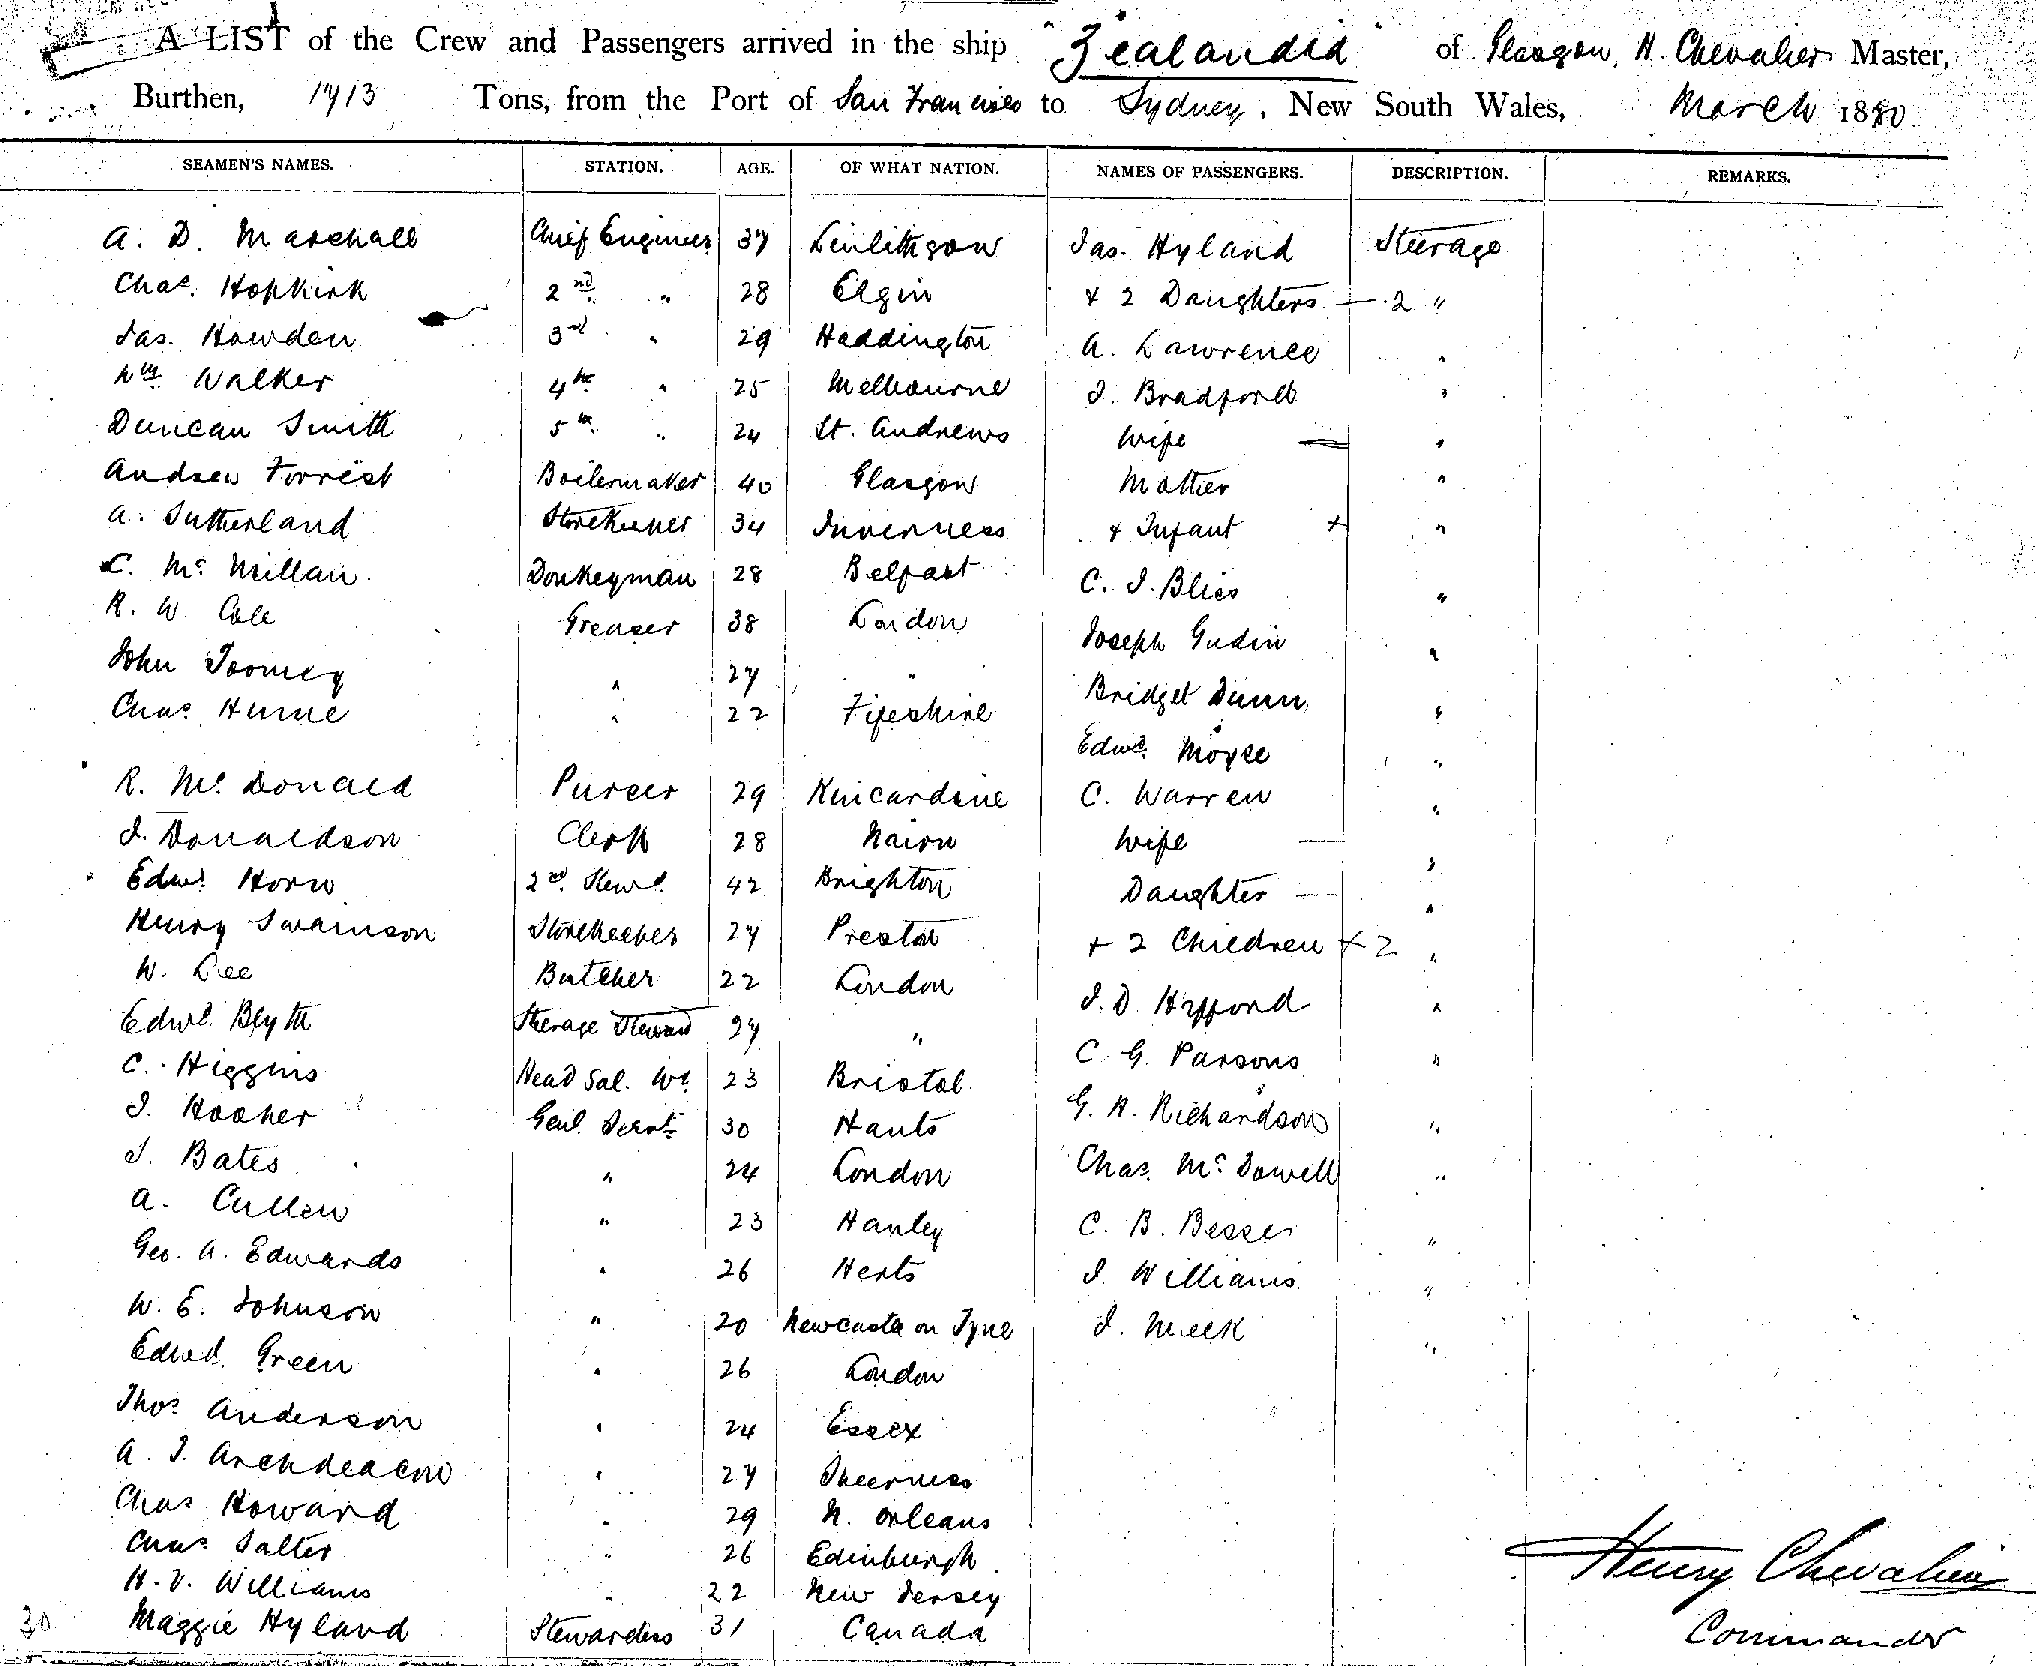 A LIST of the Crew and Passengers arrived in the ship "Zealandia" of Glasgow, H. Chevalier Master,
Burthen, 1713 Tons, from the Port of San Francisco to Sydney, New South Wales, March 1880
SEAMEN'S NAMES. STATION. AGE. OF WHAT NATION. NAMES OF PASSENGERS. DESCRIPTION. REMARKS.
A. D. Marshall Chief Engineer 37 Linlithgow Jas. Hyland Steerage
Chas. Hopkirk 2nd " 28 Elgin + 2 Daughters — 2 "
Jas. Howden 3rd " 29 Haddington A. Lawrence "
Wm Walker 4th " 25 Melbourne J. Bradford "
Duncan Smith 5th " 24 St. Andrews Wife — "
Andrew Forrest Boilermaker 40 Glasgow Mother "
A. Sutherland Storekeeper 34 Inverness + Infant + "
C. McMillan Donkeyman 28 Belfast C. J. Bliss "
R. W. Cole Greaser 38 London Joseph Gudin "
John Toomey " 27 " Bridget Dunn "
Chas Hume " 22 Fifeshire Edwd. Moyse "
R. McDonald Purser 29 Kincardine C. Warren "
J. Donaldson Clerk 28 Nairn Wife — "
Edwd. Horn 2nd. Stewd. 42 Brighton Daughter — "
Henry Swainson Storekeeper 27 Preston + 2 Children + 2 "
W. Lee Butcher 22 London J. D. Hifford "
Edwd. Blyth Steerage Steward 27 " C. G. Parsons "
C. Higgins Head Sal. Wt. 23 Bristol G. R. Richardson "
J. Hooker Genl. Servt. 30 Hants Chas. McDowell "
J. Bates " 24 London C. B. Besser "
A. Cullen " 23 Hanley J. Williams "
Geo. A. Edwards " 26 Herts J. Meek "
W. E. Johnson " 20 Newcastle on Tyne
Edwd. Green " 26 London
Thos Anderson " 24 Essex
A. J. Archdeacon " 27 Sheerness
Chas Howard " 29 N. Orleans
Chas Salter " 26 Edinburgh
H. V. Williams " 22 New Jersey
30 Maggie Hyland Stewardess 31 Canada
Henry Chevalier
Commander